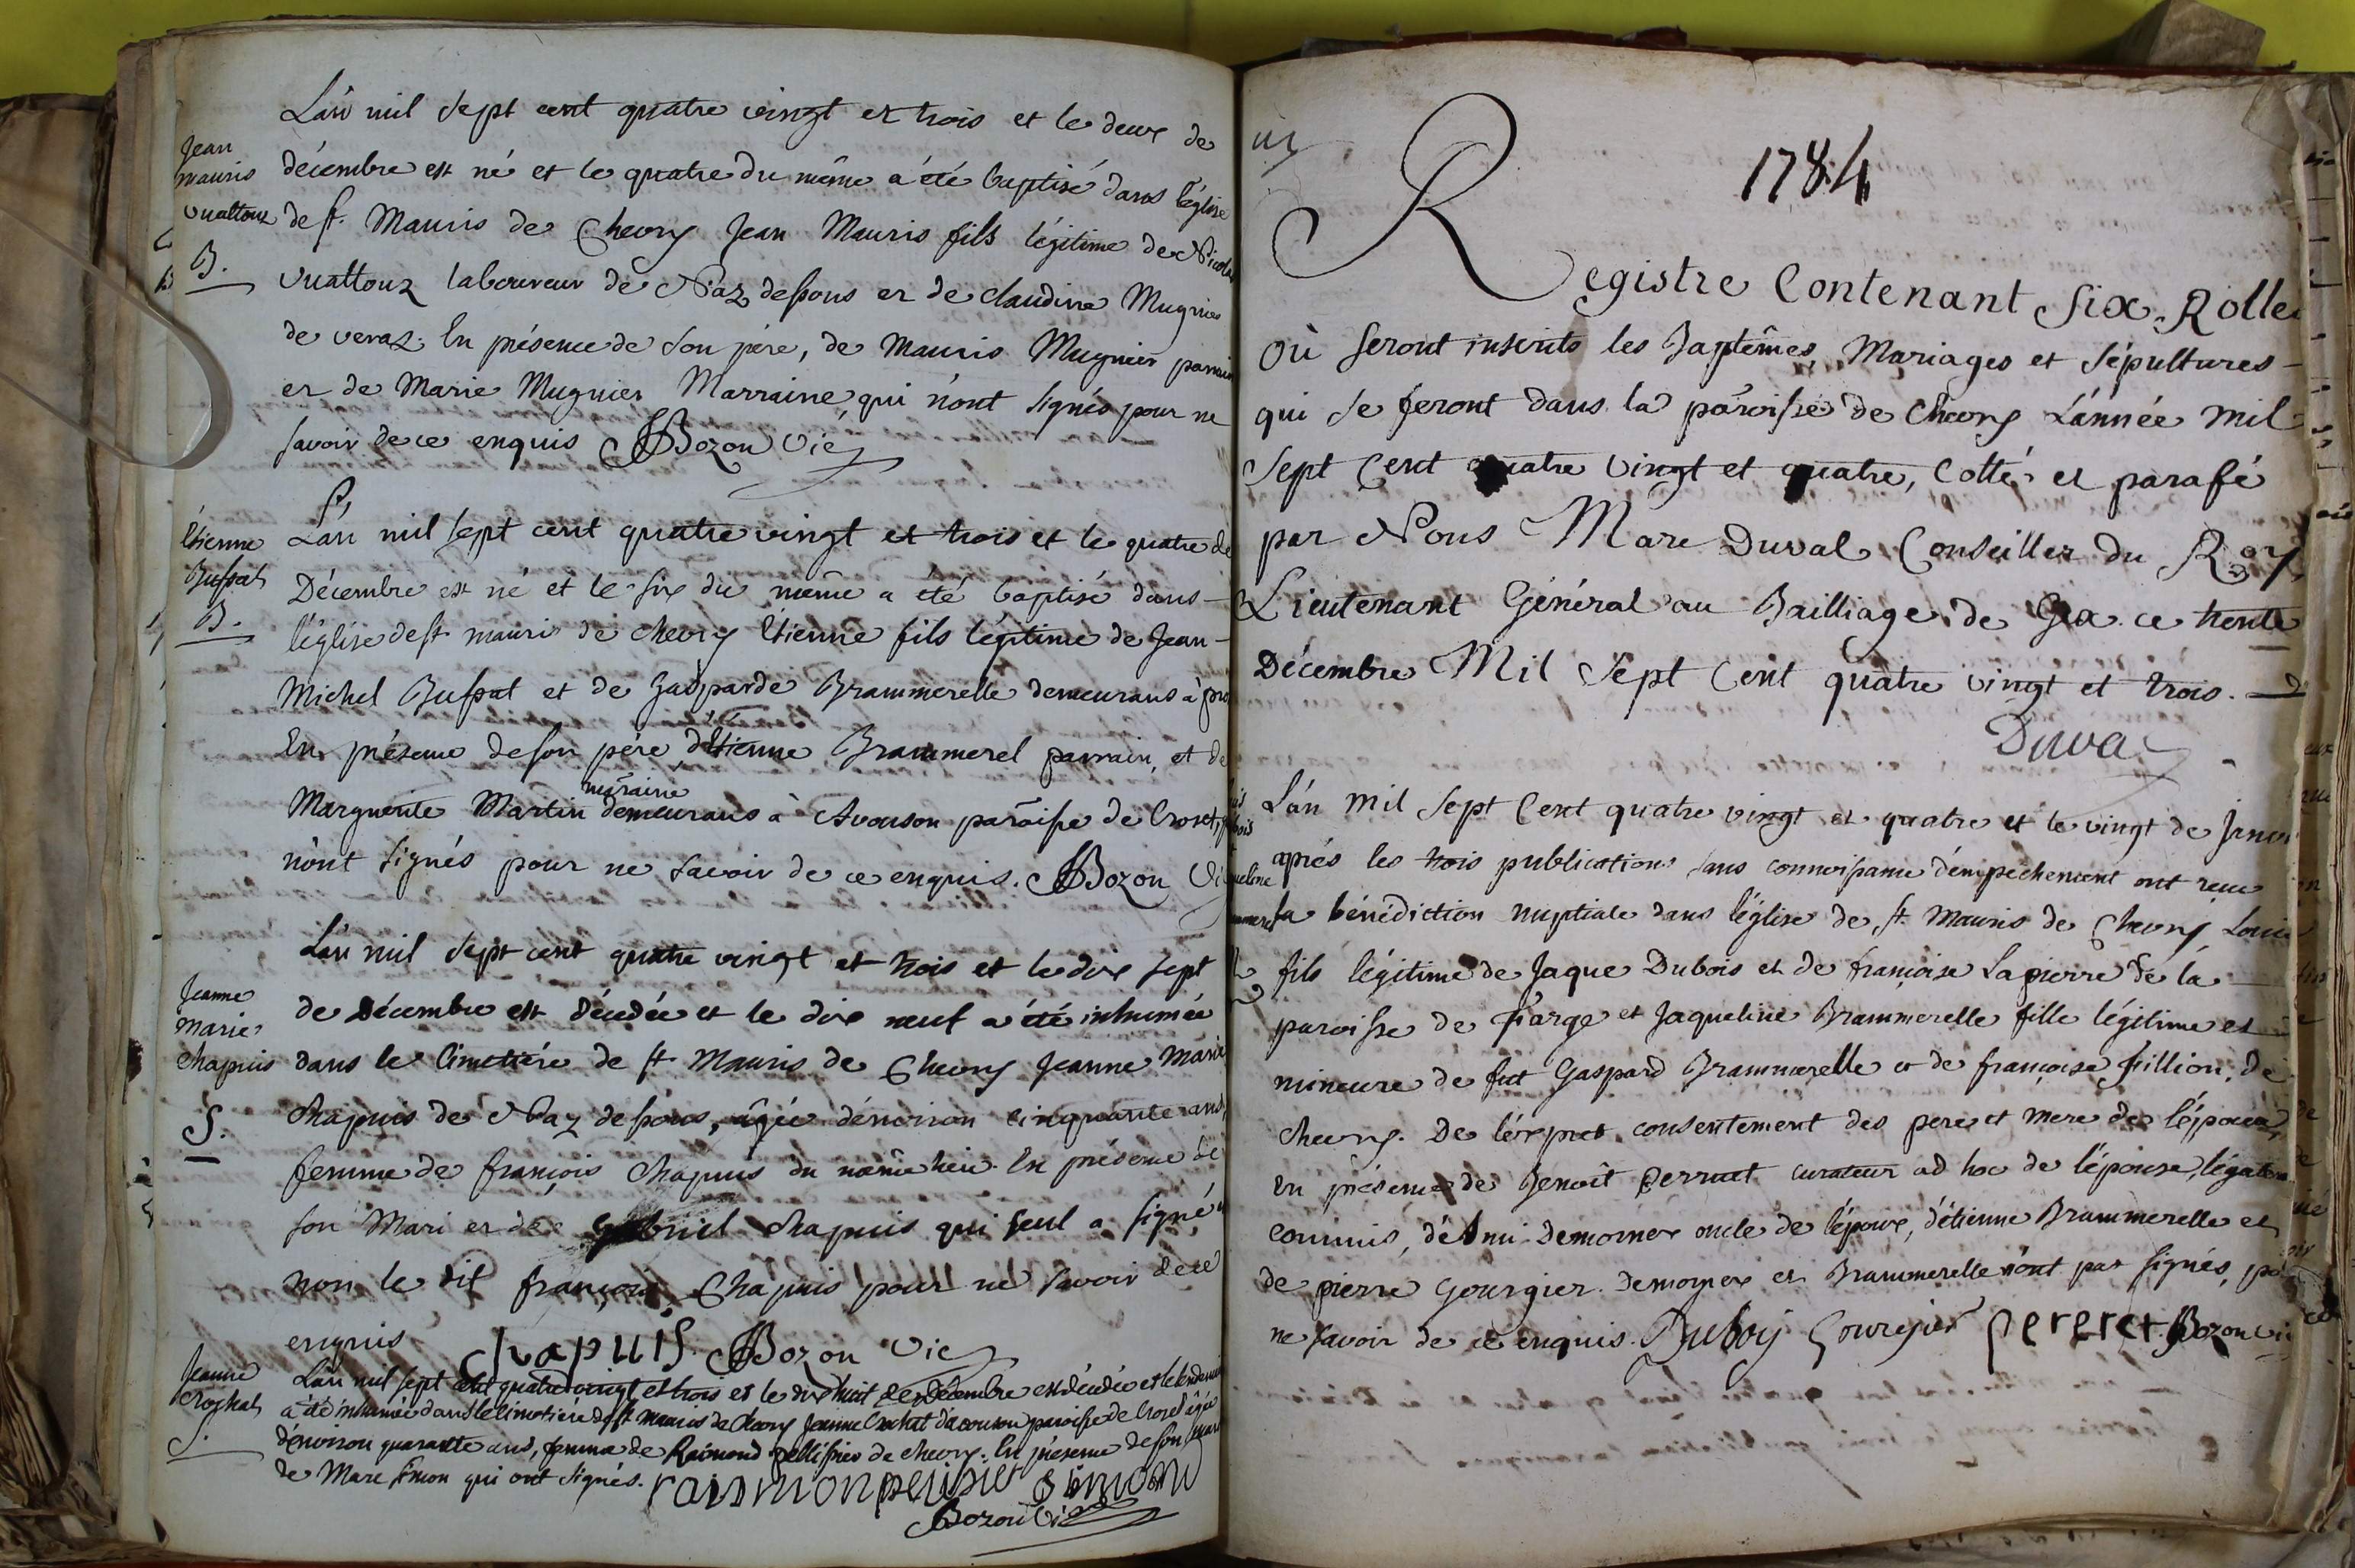 L'an mil sept cent quatre vingt et trois et le deux de
Jean
mauris
vuattoux
B.
décembre est né et le quatre du même a été baptisé dans l'église
de st. Mauris de Chevry Jean Mauris fils légitime de Nicolas
Vuattoux laboureur de Naz dessous et de claudine Mugnier
de veraz. En présence de son père, de Mauris Mugnier parrain
et de Marie Mugnier Marraine, qui n'ont signés pour ne
savoir de ce enquis Bozon vic
Etienne
Bussat
B.
L'an mil sept cent quatre vingt et trois et le quatre de
Décembre est né et le six du même a été baptisé dans
l'église de st mauris de chevry Etienne fils légitime de Jean
Michel Bussat et de Gasparde Brammerelle demeurans à
En présence de son père, d'Etienne Brammerel parrain, et de
maraine
Marguerite Martin demeurans à Avouson paroisse de Crozet,
n'ont signés pour ne savoir de ce enquis. Bozon Vi
L'an mil sept cent quatre vingt et trois et le dix sept
Jeanne
marie
chapuis
S.
de Décembre est décédée et le dix neuf a été inhumée
dans le Cimetière de st Mauris de Chevry Jeanne Marie
Chapuis de Naz dessous, agée d'environ cinquante ans,
femme de françois Chapuis du même lieu. En présence de
son Mari et de Gabriel chapuis qui seul a signé
non le dit françois Chapuis pour ne savoir de ce
enquis chapuis. Bozon Vic
Jeanne
Crochat
S.
L'an mil sept cent quatre vingt et trois et le dix huit de Décembre est décédée et le lendemain
a été inhumée dans le Cimetière de st mauris de Chevry Jeanne Crochat d'avouson paroisse de Crozet agée
d'environ quarante ans, femme de Raimond pellissier de chevry. En présence de son mari
de Marc Simon qui ont signés. raimmon pelisier simon
Bozon Vi
1784
Registre Contenant Six Rolles
où seront inscrits les Baptêmes, Mariages et Sépultures
qui se feront dans la paroisse de Chevry L'année mil
Sept Cent quatre vingt et quatre, Cotté et parafé
par Nous Marc Duval Conseiller du Roy
Lieutenant Général au Bailliage de Gex ce trente
Décembre Mil Sept Cent quatre vingt et trois.
Duval
L'an mil sept Cent quatre vingt et quatre et le vingt de Janvi
après les trois publications sans connoissance d'empêchement ont reçu
la bénédiction nuptiale dans l'église de st Mauris de Chevry, Louis
fils légitime de Jaque Dubois et de françoise Lapierre de la
paroisse de Farge et Jaqueline Brammerelle fille légitime et
mineure de fut Gaspard Brammerelle et de françoise fillion, de
chevry. De l'expret consentement des pere et mere de l'époux,
En présence de Benoît perruet curateur ad hoc de l'épouse, légatem
commis, d'Ami Demornex oncle de l'époux, d'étienne Brammerelle et
de pierre Gourgier. Demornex et Brammerelle n'ont pas signés, po
ne savoir de ce enquis. Duboy Gourgier pereret Bozon vi